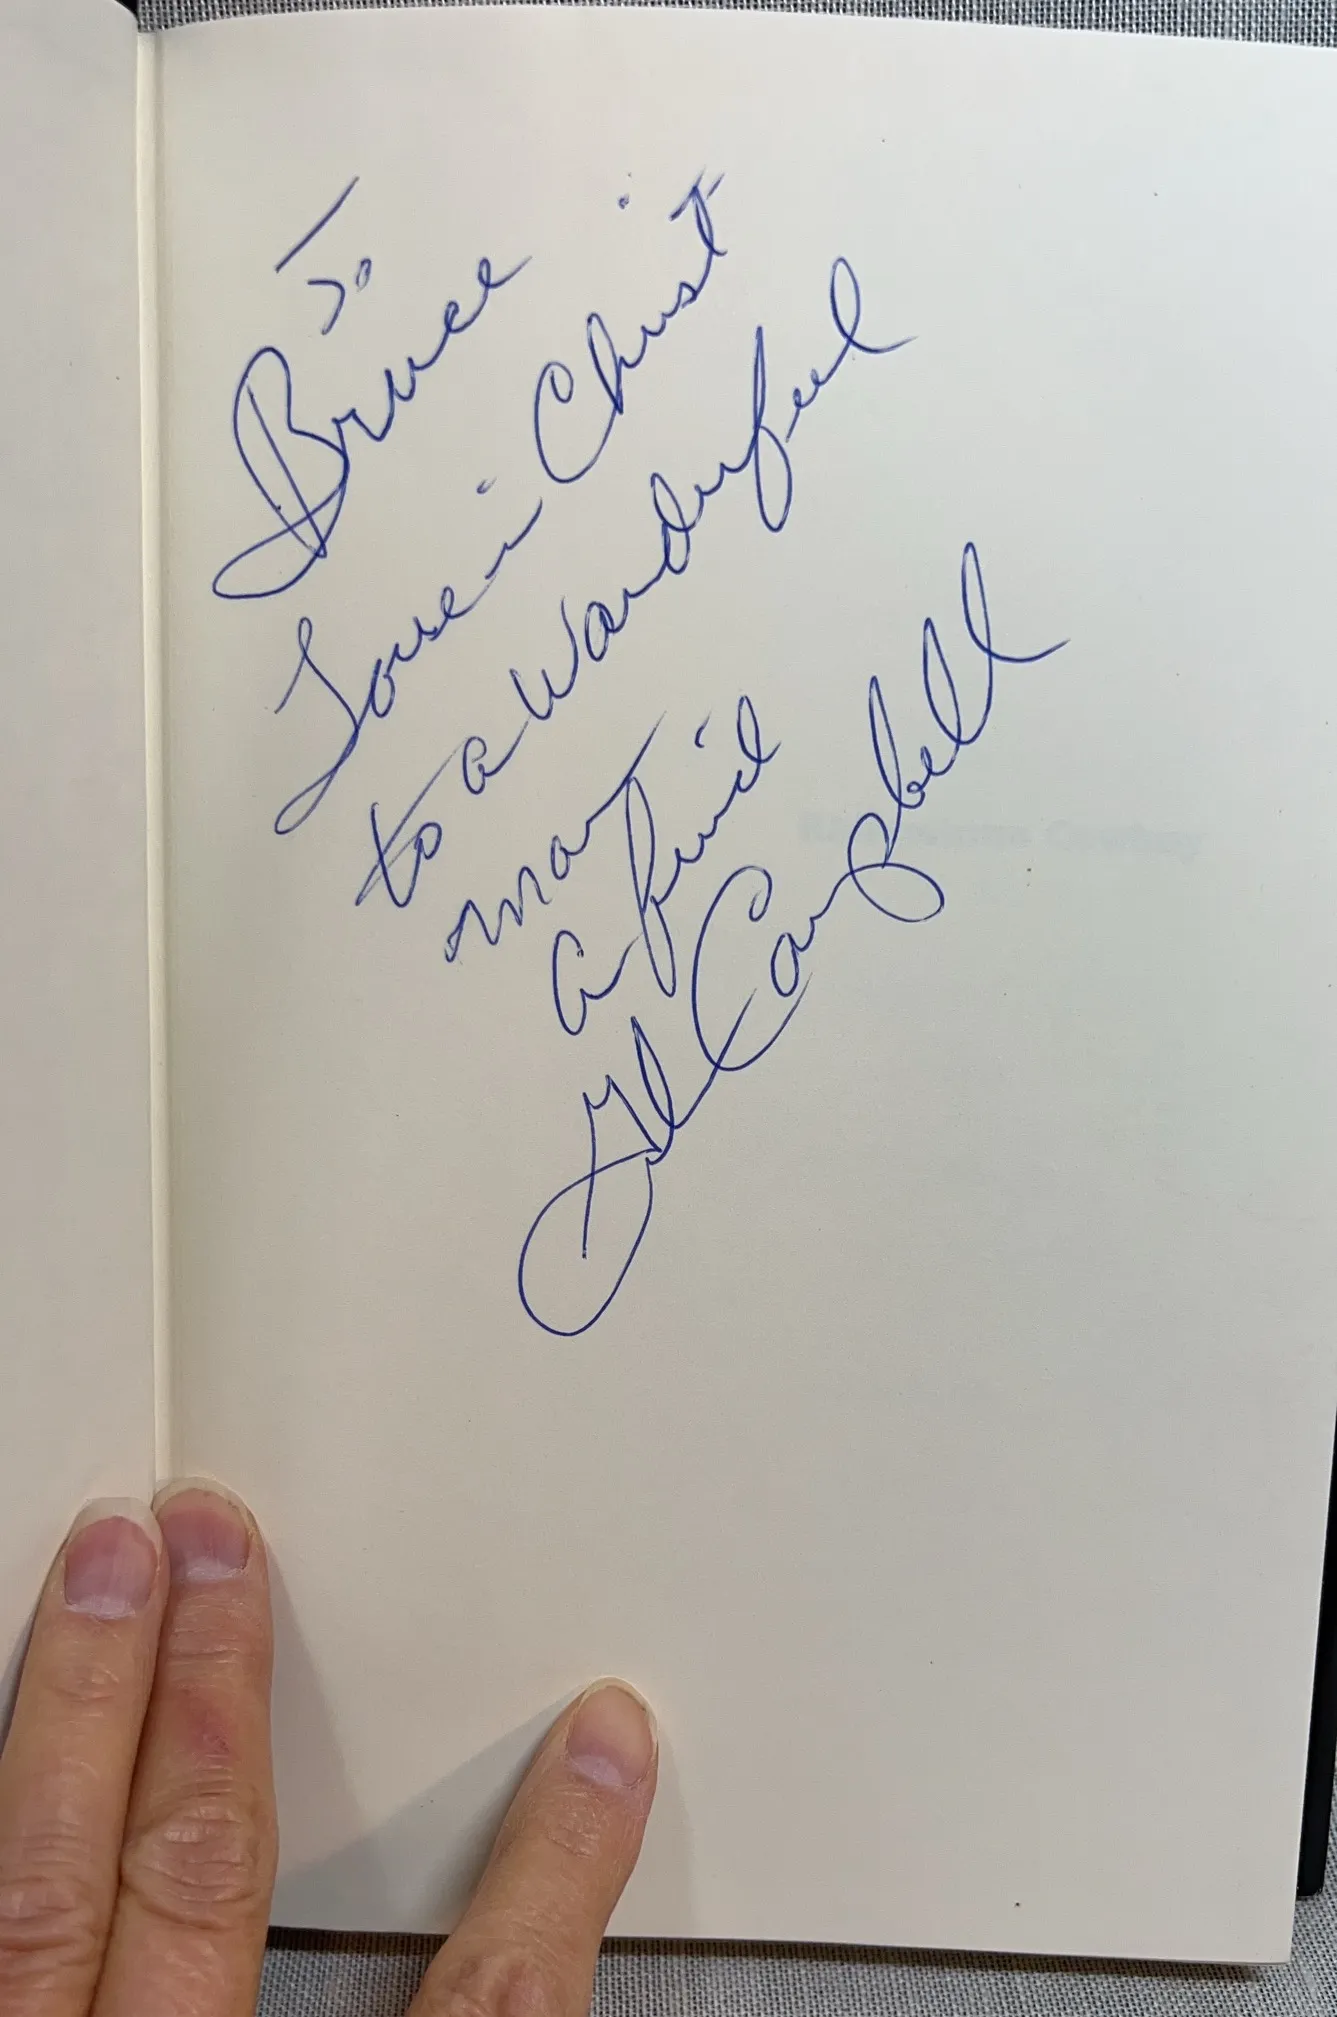 To
Bruce
Love in Christ
to a wonderful
man
a friend
Glen Campbell
Rhinestone Cowboy